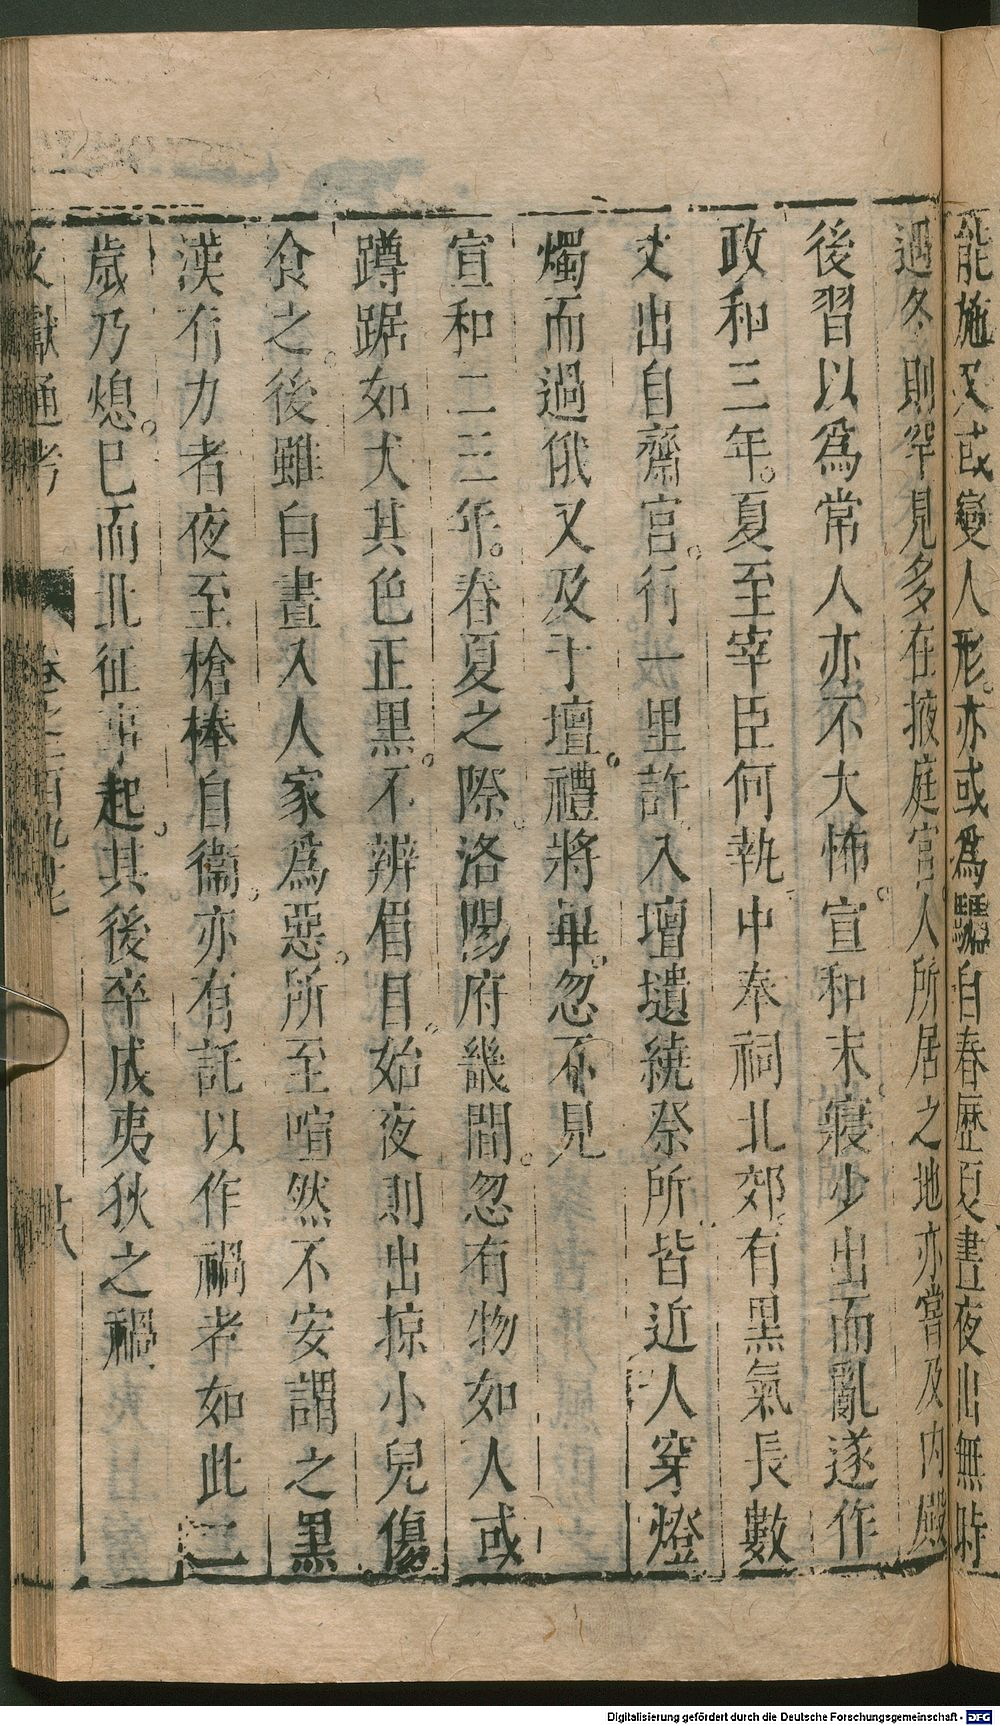 能施又或變人形亦或為驢自春歷夏晝夜出無時
過冬則罕見多在掖庭宮人所居之地亦嘗及內殿
後習以爲常人亦不大怖宣和末寢少出而亂遂作
政和三年夏至宰臣何執中奉祠北郊有黑氣長數
丈出自齋宮行一里許入壇壝繞祭所皆近人穿燈
燭而過俄又及于壇禮將畢忽不見
宣和二三年春夏之際洛陽府畿間忽有物如人或
蹲踞如犬其色正黑不辨眉目始夜則出掠小兒傷
食之後雖白晝入人家爲惡所至喧然不安謂之黑
漢有力者夜至槍棒自衞亦有託以作禍者如此二
歲乃熄已而北征事起其後卒成夷狄之禍
文獻通考 卷之三百九 十八
Digitalisierung gefördert durch die Deutsche Forschungsgemeinschaft - DFG